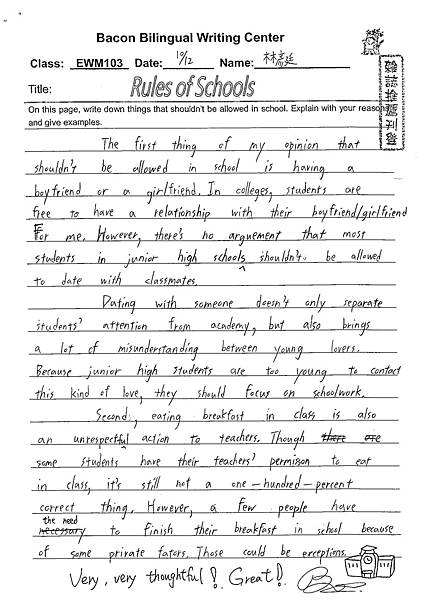 Bacon Bilingual Writing Center
Class: EWM103 Date: 10/12 Name: 林
Title: Rules of Schools
On this page, write down things that shouldn't be allowed in school. Explain with your reasons
and give examples.
The first thing of my opinion that
shouldn't be allowed in school is having a
boyfriend or a girlfriend. In colleges, students are
free to have a relationship with their boyfriend/girlfriend
For me. However, there's no arguement that most
students in junior high schools shouldn't be allowed
to date with classmates.
Dating with someone doesn't only separate
students' attention from academy, but also brings
a lot of misunderstanding between young lovers.
Because junior high students are too young to contact
this kind of love, they should focus on schoolwork.
Second, eating breakfast in class is also
an unrespectful action to teachers. Though there are
some students have their teachers' permission to eat
in class, it's still not a one-hundred-percent
correct thing. However, a few people have
the need
necessary to finish their breakfast in school because
of some private fators. Those could be exceptions.
Very, very thoughtful! Great!